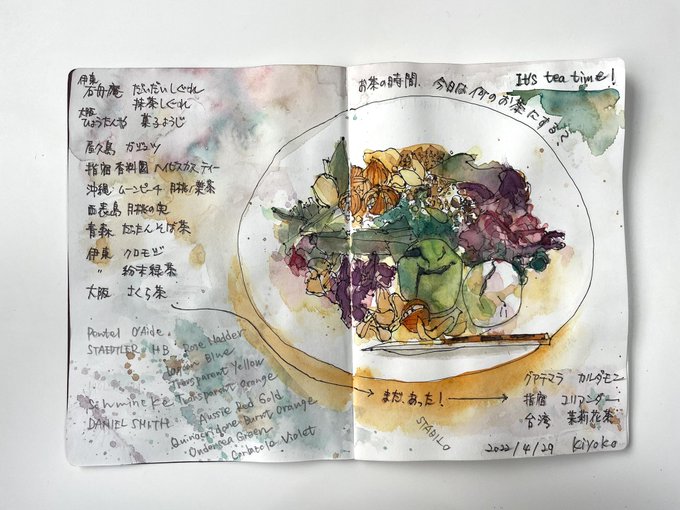 伊東
石舟庵 だいだいしぐれ
抹茶しぐれ
大阪
ひょうたんや 菓子ようじ
屋久島 ガジュツ
指宿 香料園 ハイビスカスティー
沖縄 ムーンピーチ 月桃ノ葉茶
西表島 月桃の実
青森 だったんそば茶
伊東 クロモジ
〃 粉末緑茶
大阪 さくら茶
Pentel O'Aide.
STAEDTLER HB. Rose Madder
Blue
Transparent Yellow
Schmincke Transparent Orange
Aussie Red Gold
DANIEL SMITH Quinacridone Burnt Orange
Undersea Green
Violet
お茶の時間、今日は何のお茶にする?
It's tea time!
まだ、あった!
グアテマラ カルダモン
指宿 コリアンダー
台湾 茉莉花茶
STABILO
2022/4/29 Kiyoko